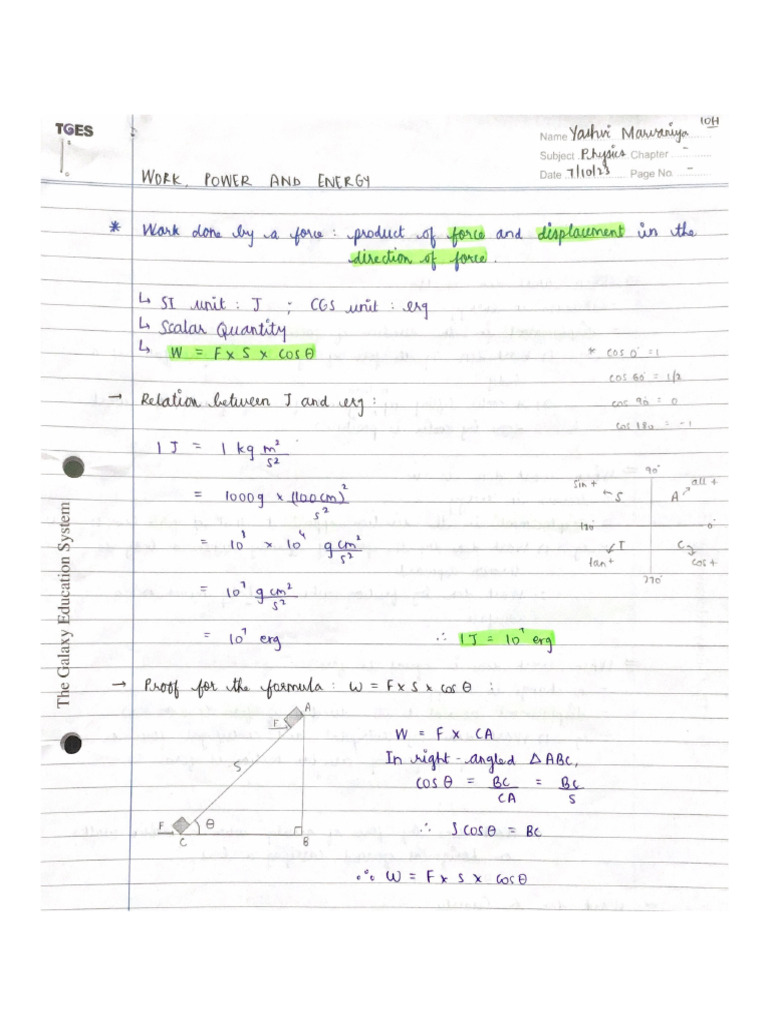 TGES
10H
Name Yashvi Marvaniya
Subject Physics Chapter -
Date 7/10/23 Page No. -
WORK, POWER AND ENERGY
* Work done by a force : product of force and displacement in the
direction of force.
↳ SI unit : J ; CGS unit : erg
↳ Scalar Quantity
↳ W = F x S x cos θ
* cos 0° = 1
cos 60° = 1/2
cos 90 = 0
cos 180 = -1
→ Relation between J and erg :
1 J = 1 kg m²/s²
= 1000g × (100cm)²/s²
= 10³ × 10⁴ g cm²/s²
= 10⁷ g cm²/s²
= 10⁷ erg ∴ 1 J = 10⁷ erg
90°
sin + S A all +
180° 0°
tan + T C cos +
270°
→ Proof for the formula : W = F x S x cos θ :
A
F
S
F θ
C B
W = F x CA
In right-angled △ ABC,
cos θ = BC/CA = BC/S
∴ S cos θ = BC
∴ W = F x S x cos θ
The Galaxy Education System